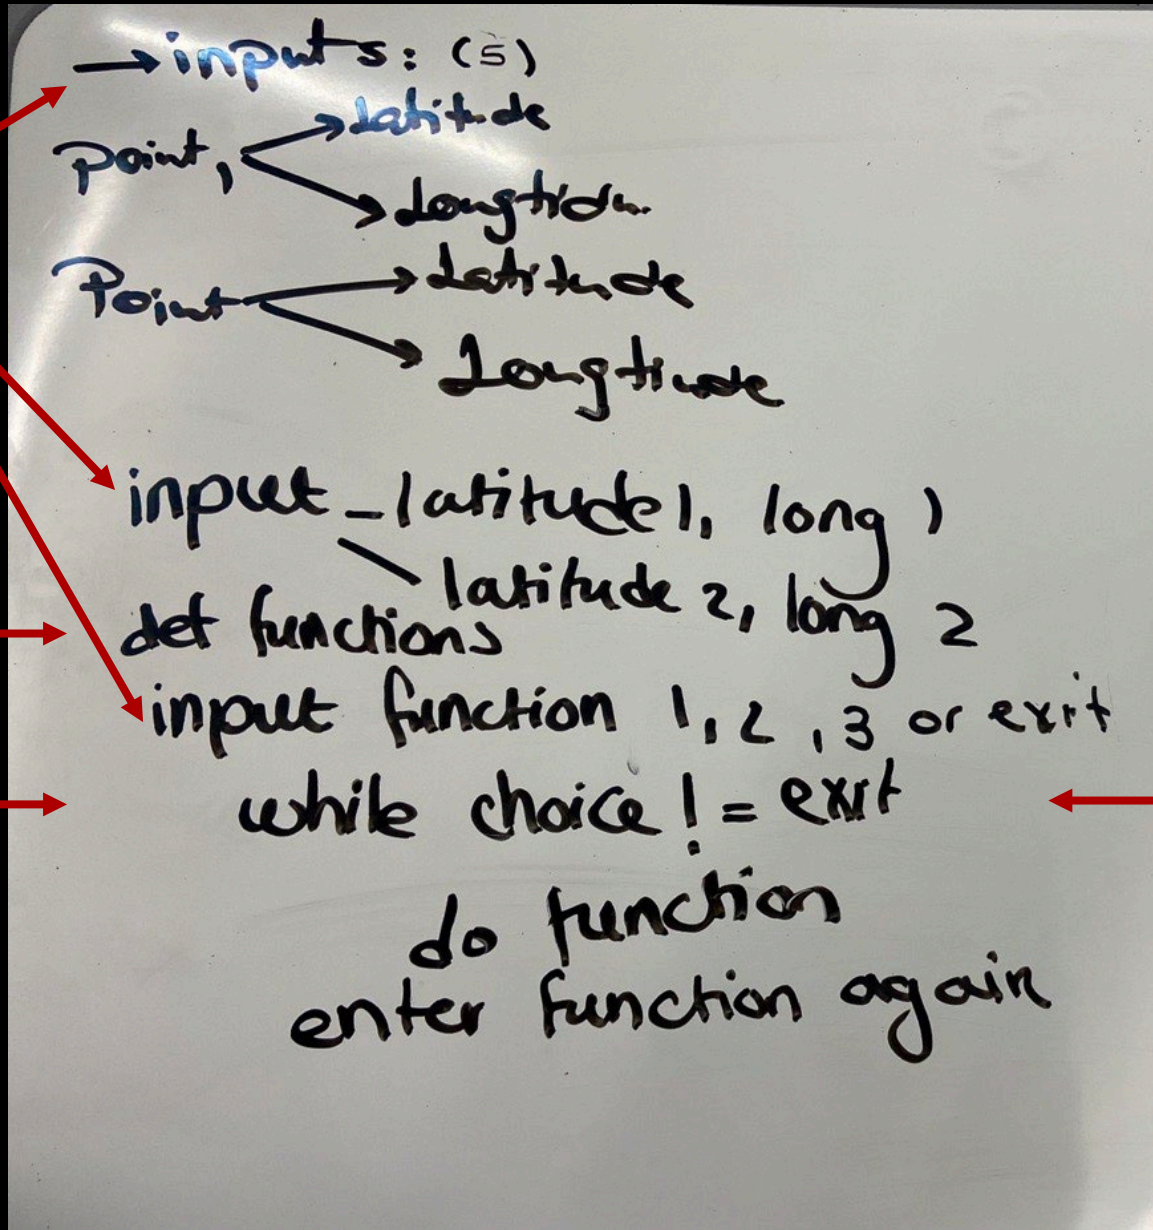 → inputs: (5)
Point, → Latitude
→ Longtidu
Point → Latitude
→ Longtiude
input - latitude1, long 1
latitude 2, long 2
def functions
input function 1, 2, 3 or exit
while choice != exit
do function
enter function again